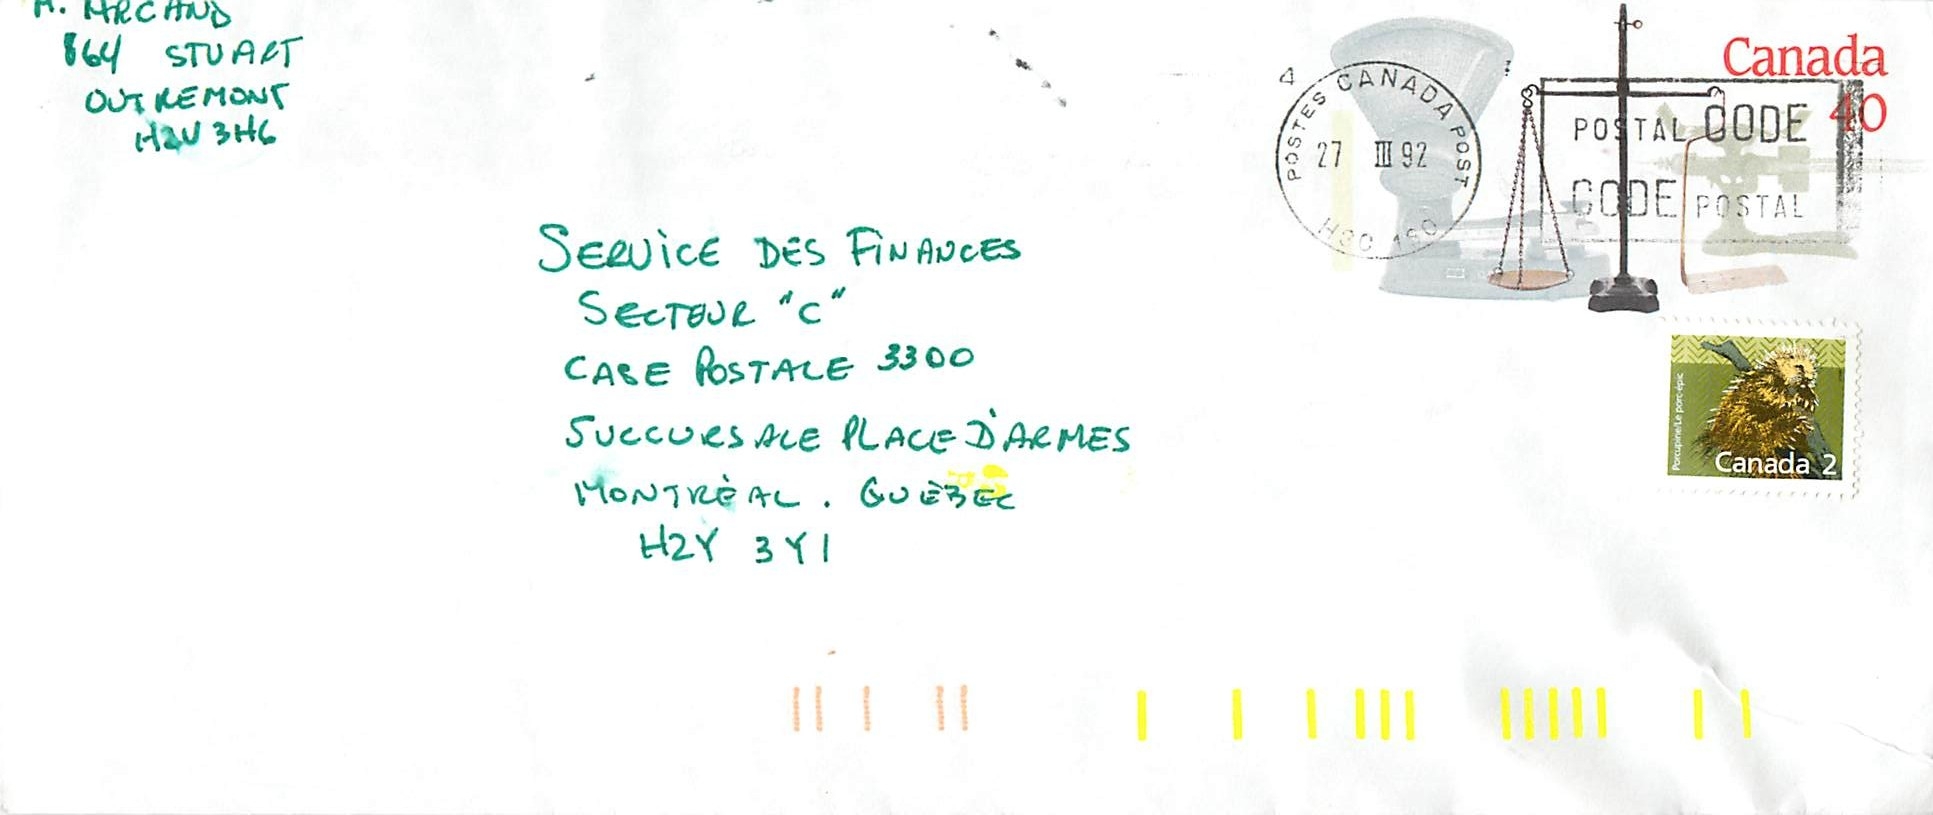 A. ARCAND
864 STUART
OUTREMONT
H2V 3H6
4
POSTES CANADA POST
27 III 92
Canada
40
POSTAL CODE
CODE POSTAL
SERVICE DES FINANCES
SECTEUR "C"
CASE POSTALE 3300
SUCCURSALE PLACE D'ARMES
MONTRÈAL. QUÈBEC
H2Y 3Y1
Porcupine/Le porc-épic
Canada 2